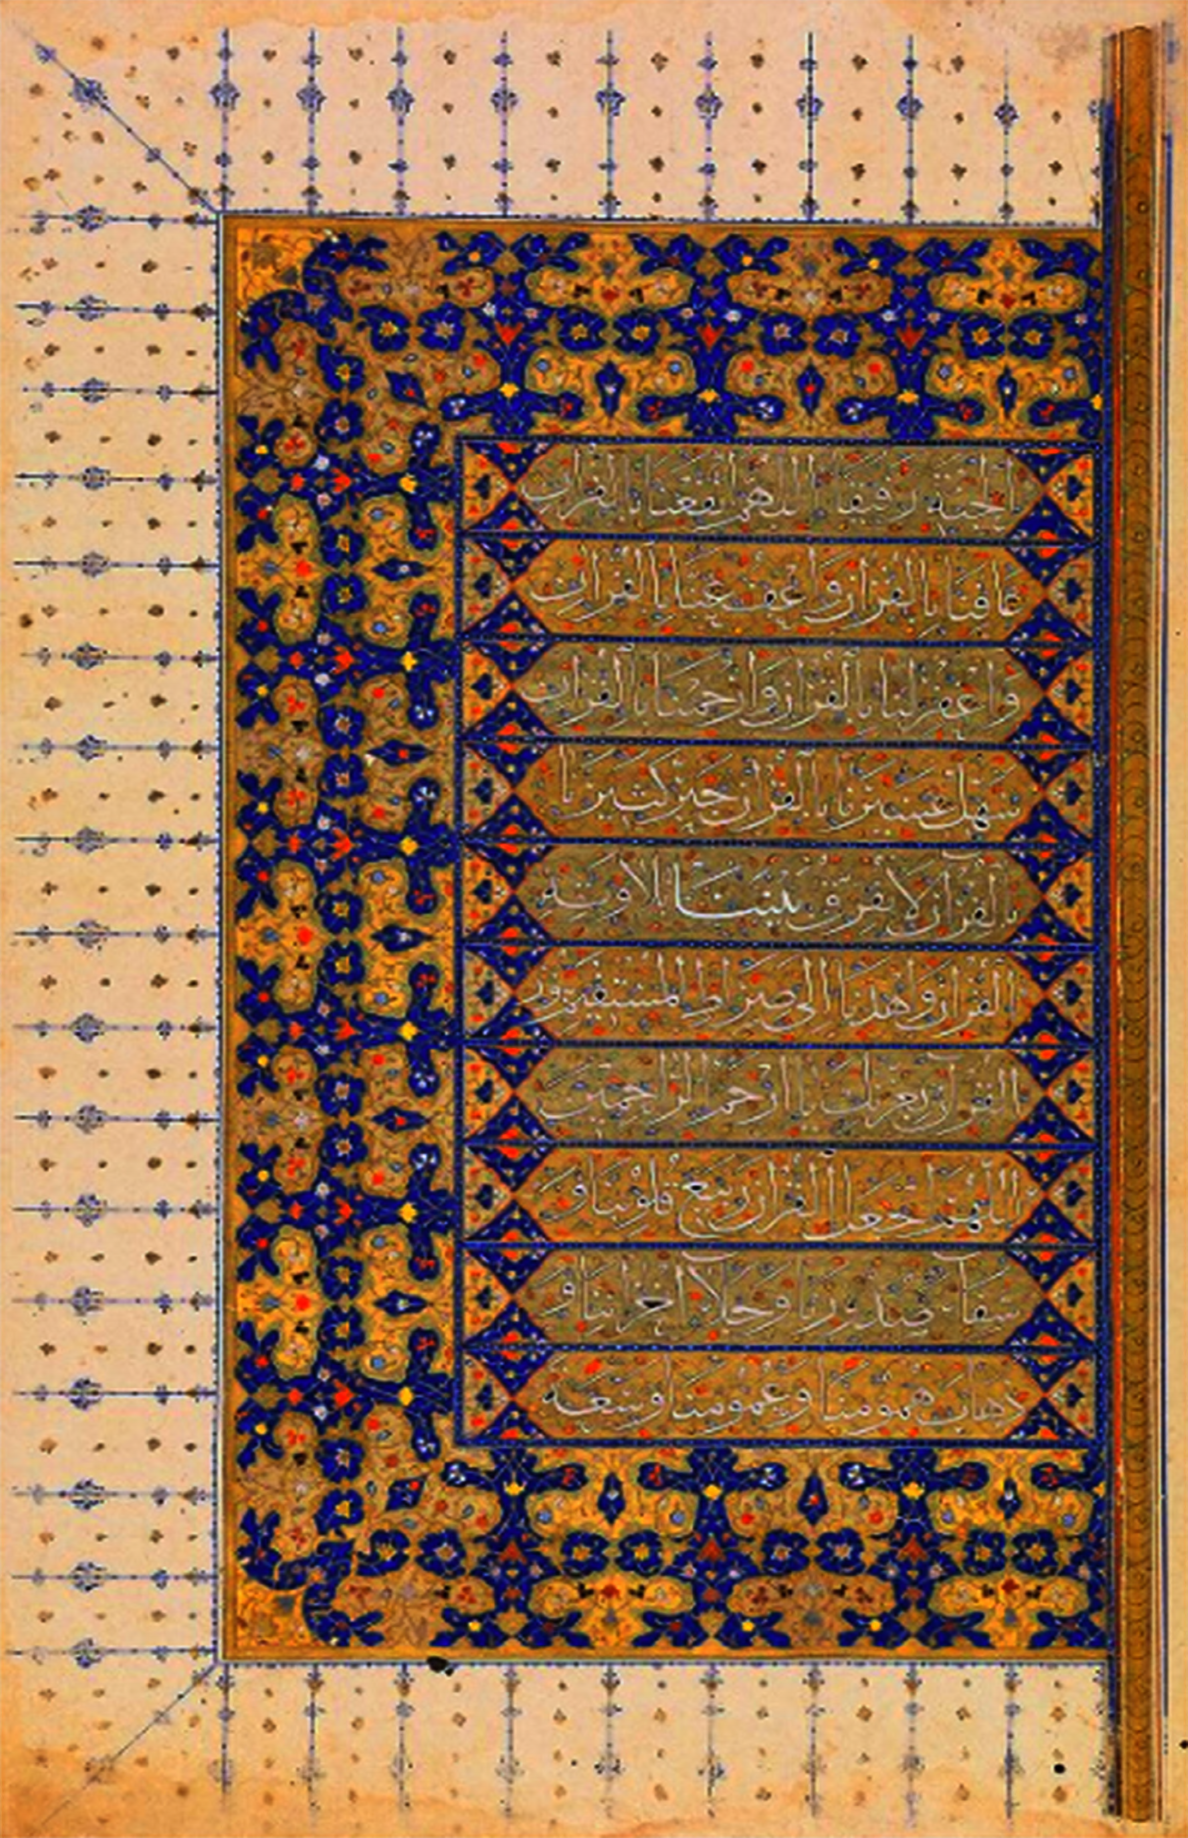 الجنة رفيقا اللهم انفعنا بالقرآن
عافنا بالقرآن واعف عنا بالقرآن
واغفر لنا بالقرآن وارحمنا بالقرآن
سهل عسيرنا بالقرآن خير كثيرنا
بالقرآن لا يفرق بيننا
القرآن واهدنا الى صراط المستقيم
القرآن بعزتك يا ارحم الراحمين
اللهم اجعل القرآن ربيع قلوبنا و
شفاء صدورنا وجلاء احزاننا و
ذهاب همومنا وغمومنا وسعة